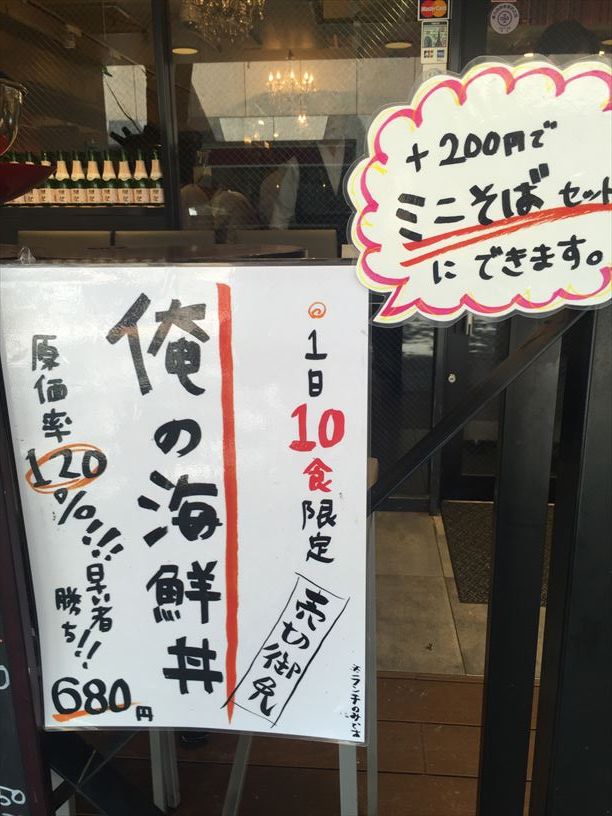 +200円で
ミニそばセット
にできます。
1日10食限定
売切御免
俺の海鮮丼
原価率120%!!!
早い者勝ち!!
680円
MasterCard
JCB